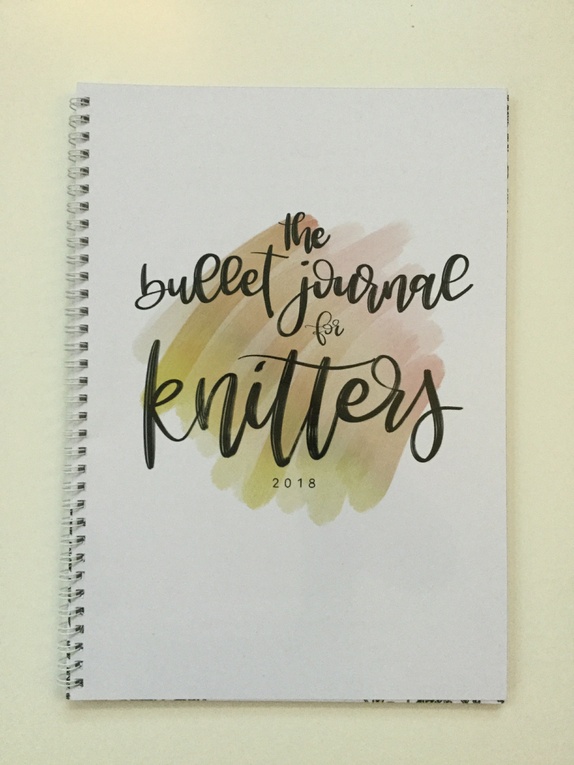 the
bullet journal
for
knitters
2018